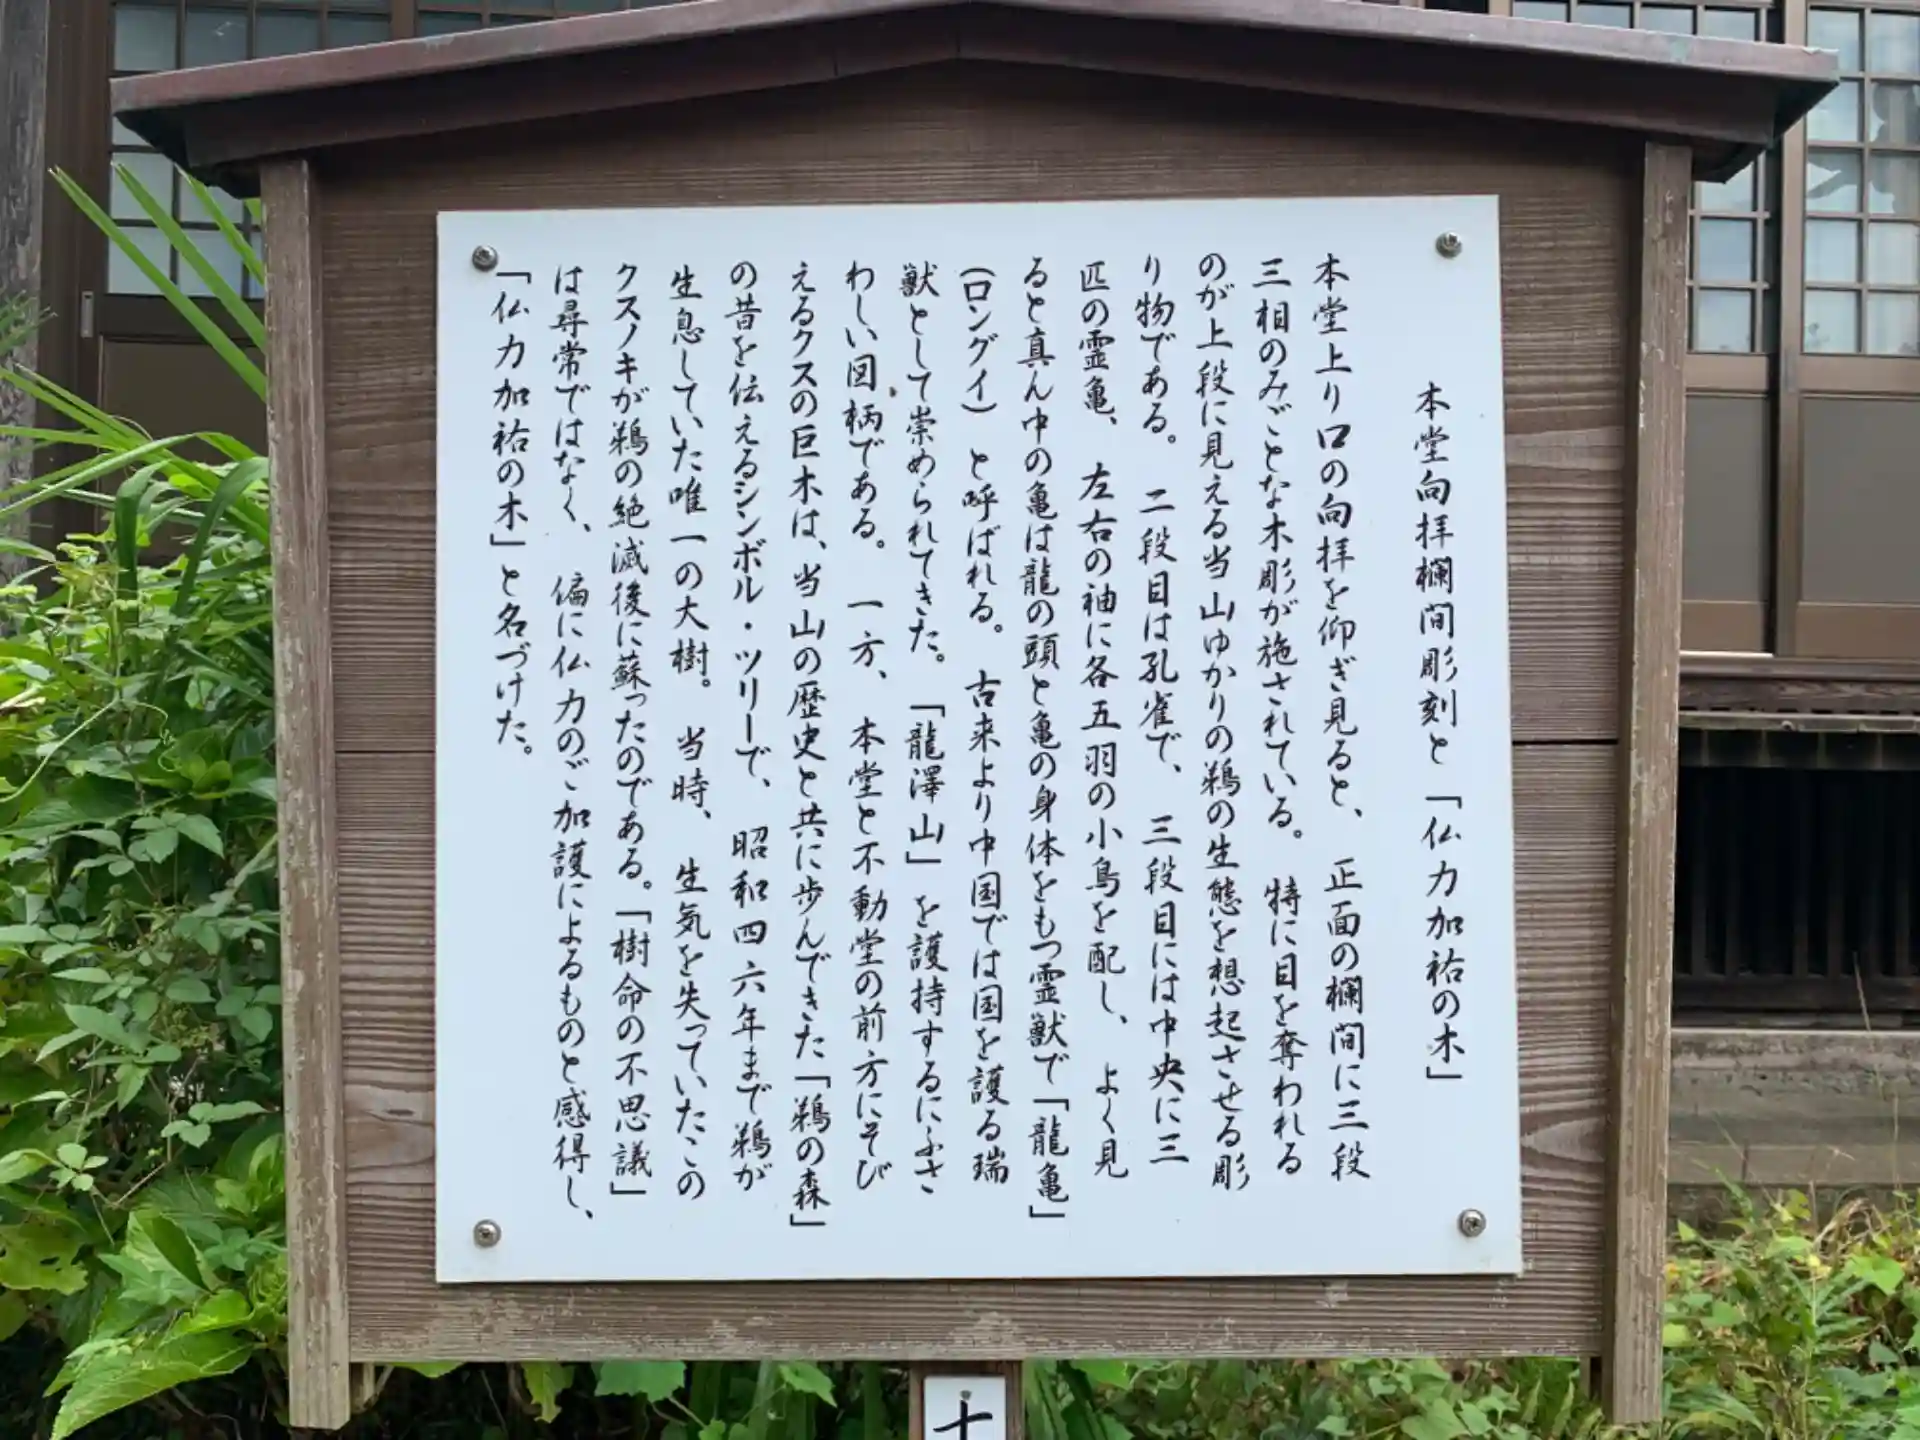 本堂向拝欄間彫刻と「仏力加祐の木」
本堂上り口の向拝を仰ぎ見ると、正面の欄間に三段
三相のみごとな木彫が施されている。特に目を奪われる
のが上段に見える当山ゆかりの鵜の生態を想起させる彫
り物である。二段目は孔雀で、三段目には中央に三
匹の霊亀、左右の袖に各五羽の小鳥を配し、よく見
ると真ん中の亀は龍の頭と亀の身体をもつ霊獣で「龍亀」
(ロングイ)と呼ばれる。古来より中国では国を護る瑞
獣として崇められてきた。「龍澤山」を護持するにふさ
わしい図柄である。一方、本堂と不動堂の前方にそび
えるクスの巨木は、当山の歴史と共に歩んできた「鵜の森」
の昔を伝えるシンボル・ツリーで、昭和四六年まで鵜が
生息していた唯一の大樹。当時、生気を失っていたこの
クスノキが鵜の絶滅後に蘇ったのである。「樹命の不思議」
は尋常ではなく、偏に仏力のご加護によるものと感得し、
「仏力加祐の木」と名づけた。
十